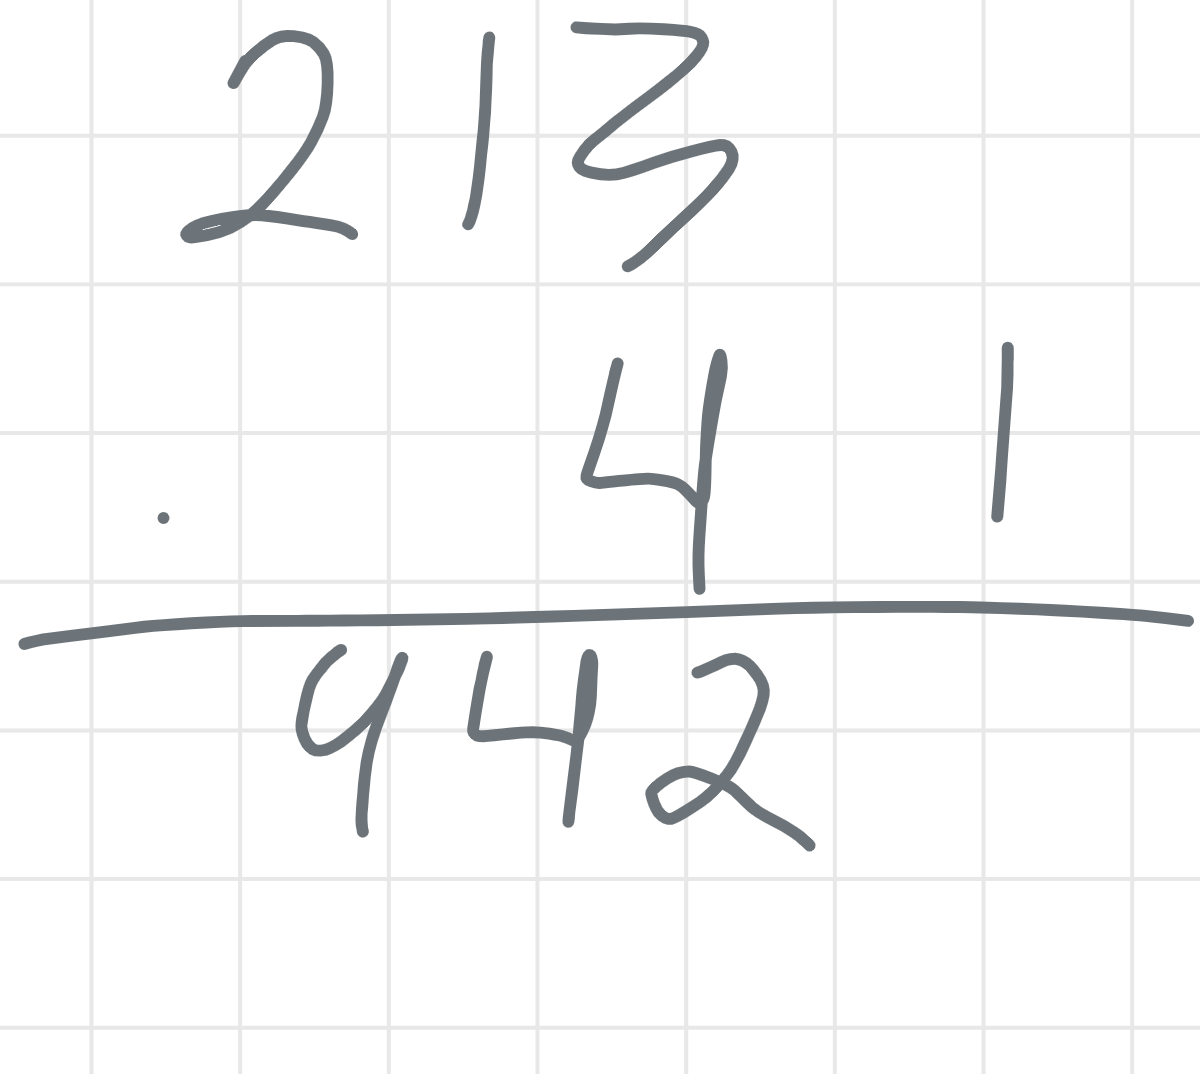 213
. 4 1
442